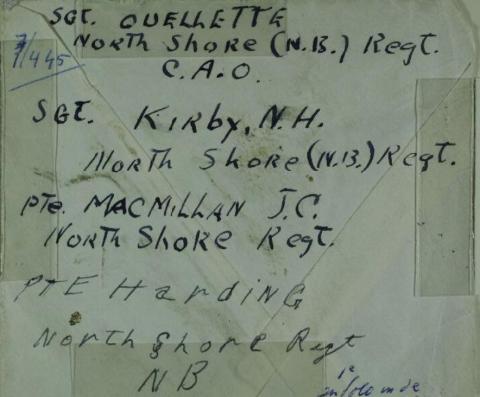 SGT. OUELLETTE
North Shore (N.B.) Regt.
C.A.O.
SGT. Kirby, N.H.
North Shore (N.B.) Regt.
pte. MACMILLAN J.C.
North Shore Regt.
PTE HardiNG
North Shore Regt
NB